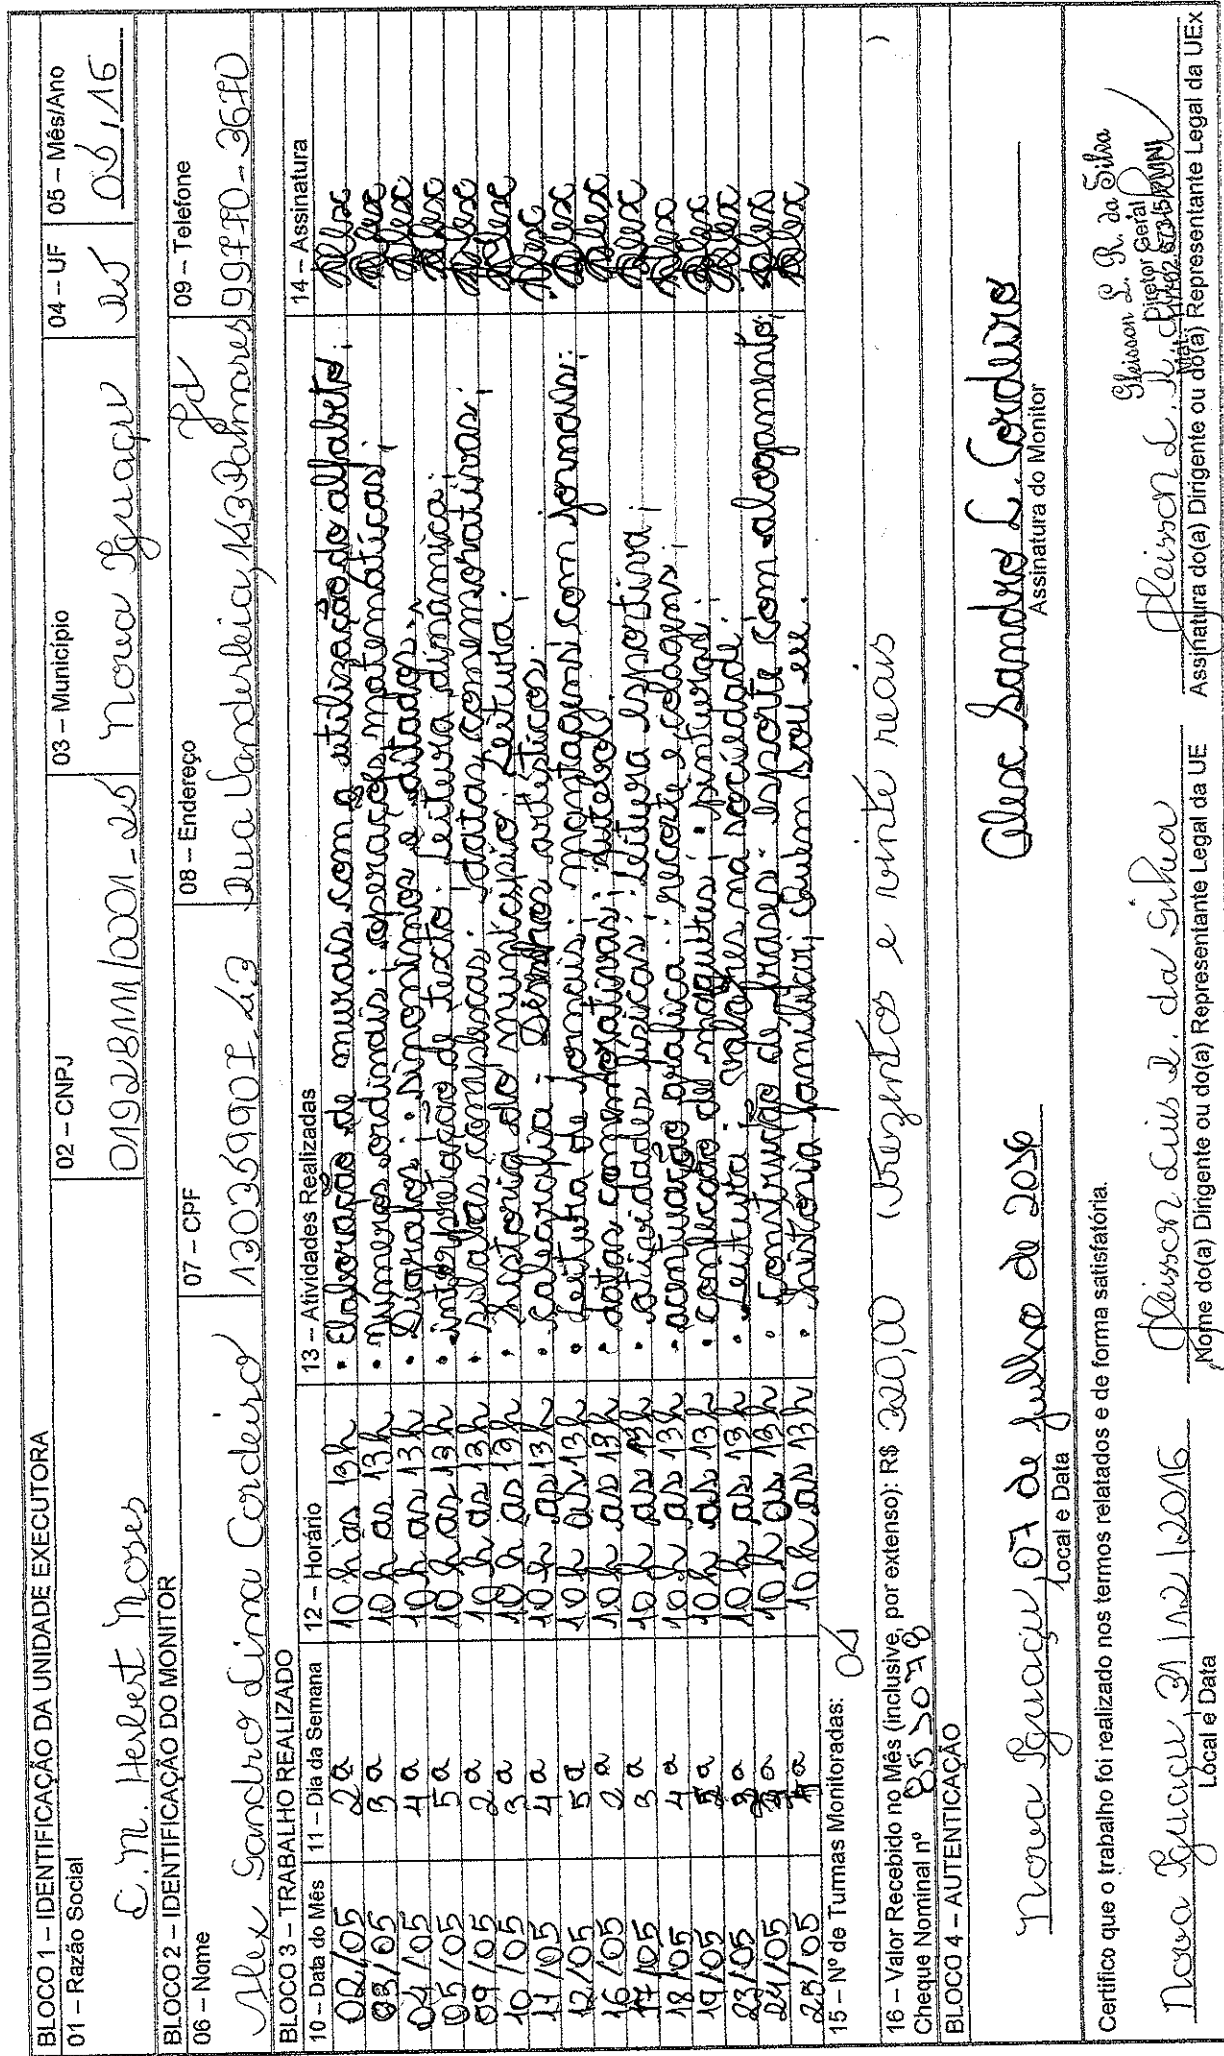 BLOCO 1 – IDENTIFICAÇÃO DA UNIDADE EXECUTORA
01 – Razão Social
02 – CNPJ
03 – Município
04 – UF
05 – Mês/Ano
E. M. Herbert Moses
Nova Iguaçu
BLOCO 2 – IDENTIFICAÇÃO DO MONITOR
06 – Nome
07 – CPF
08 – Endereço
09 – Telefone
Alex Sandro Lima Cordeiro
BLOCO 3 – TRABALHO REALIZADO
10 – Data do Mês
11 – Dia da Semana
12 – Horário
13 – Atividades Realizadas
14 – Assinatura
02/05 2ª 10h às 13h • Elaboração de murais com a utilização do alfabeto; Alex
03/05 3ª 10h as 13h • Números ordinais; operações matemáticas; Alex
04/05 4ª 10h as 13h sinonimos e ditados Alex
05/05 5ª 10h as 13h • interpretação de texto; leitura dinamica; Alex
09/05 2ª 10h as 13h • silabas complexas; datas comemorativas; Alex
10/05 3ª 10h as 13h • história do município; Leitura. Alex
11/05 4ª 10h as 13h • caligrafia; Desenhos artísticos. Alex
12/05 5ª 10h as 13h • Leitura de jornais; montagens com jornais; Alex
16/05 2ª 10h as 13h • datas comemorativas; futebol; Alex
17/05 3ª 10h as 13h • atividades físicas; leitura esportiva; Alex
18/05 4ª 10h as 13h • acentuação gráfica; recorte e colagens; Alex
19/05 5ª 10h as 13h • confecção de maquetes; pinturas; Alex
23/05 10h as 13h • Leitura; valores na sociedade. Alex
24/05 10h as 13h • Construção de frases; esporte com alogamento; Alex
25/05 10h as 13h • história familiar; quem sou eu. Alex
15 – Nº de Turmas Monitoradas:
16 – Valor Recebido no Mês (inclusive, por extenso): R$ 320,00 (trezentos e vinte reais )
Cheque Nominal nº
BLOCO 4 – AUTENTICAÇÃO
Nova Iguaçu, 07 de julho de 2016
Alex Sandro L. Cordeiro
Local e Data
Assinatura do Monitor
Certifico que o trabalho foi realizado nos termos relatados e de forma satisfatória.
Gleisson L. R. da Silva
Diretor Geral
Nova Iguaçu, 31/12/2016
Gleisson Luis R. da Silva
Local e Data
Nome do(a) Dirigente ou do(a) Representante Legal da UE
Assinatura do(a) Dirigente ou do(a) Representante Legal da UEx